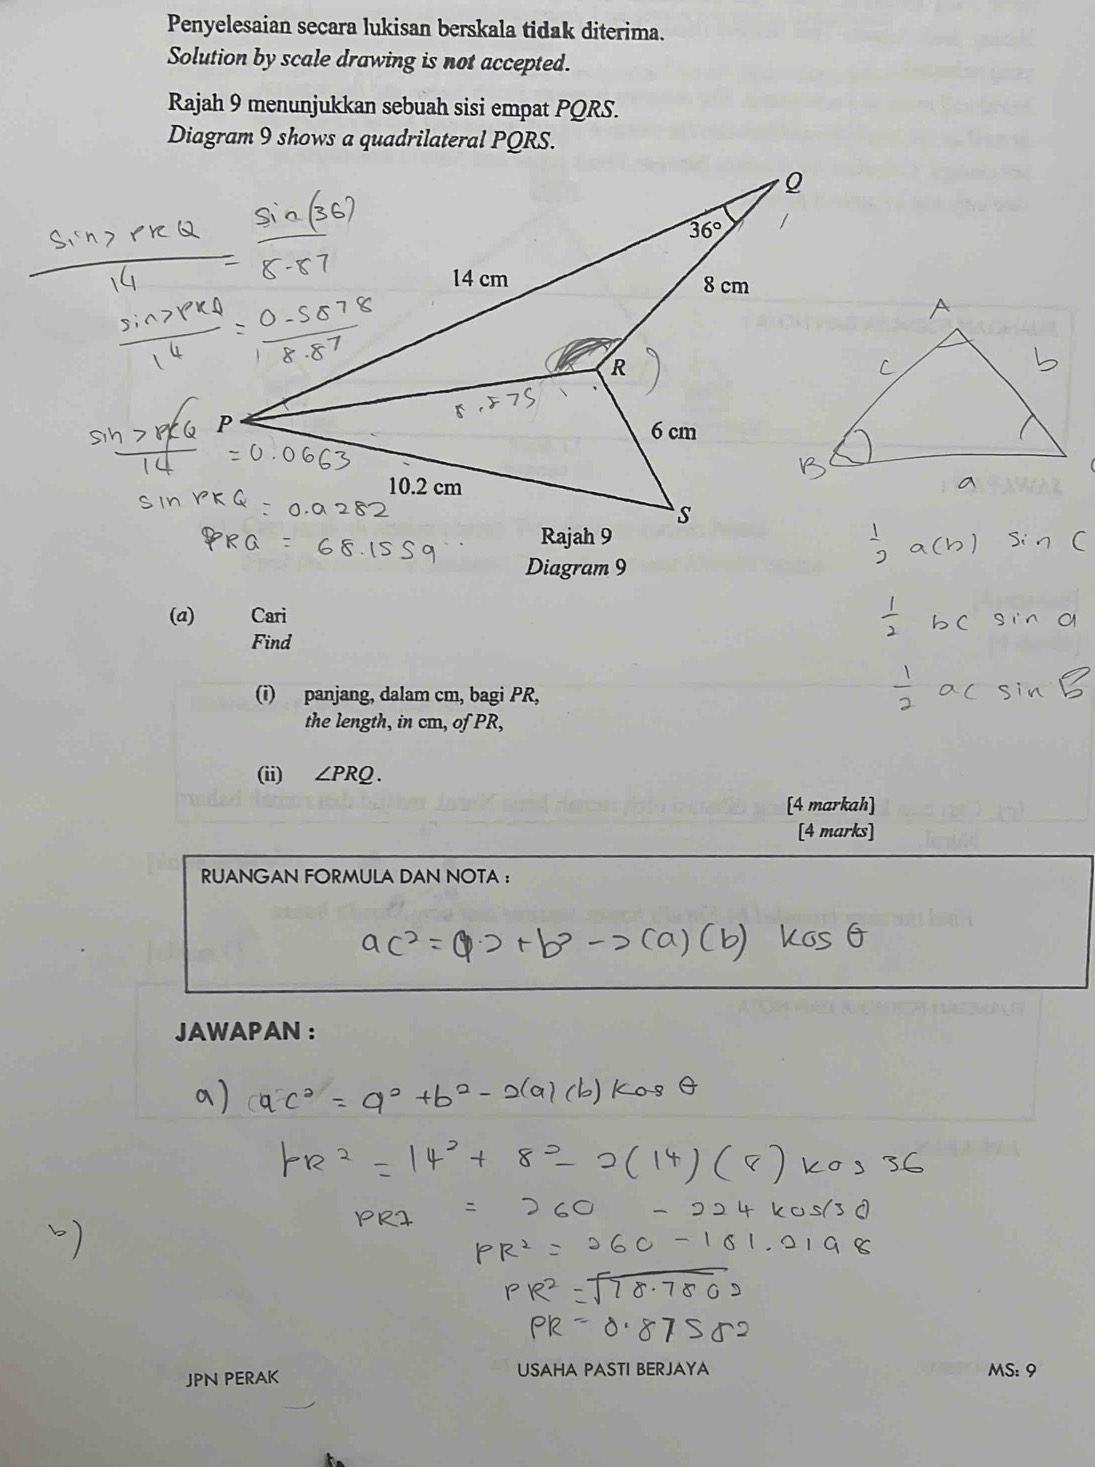 Penyelesaian secara lukisan berskala tidak diterima.
Solution by scale drawing is not accepted.
Rajah 9 menunjukkan sebuah sisi empat PQRS.
Diagram 9 shows a quadrilateral PQRS.
Q
36°
14 cm
8 cm
R
8.875
P
6 cm
10.2 cm
S
sin > PRQ / 14 = sin(36) / 8.87
sin > PRQ / 14 = 0.5878 / 8.87
sin > PRQ / 14 = 0.0663
sin PRQ = 0.9282
PRQ = 68.1559
A
c
b
B
a
1/2 a(b) sin C
1/2 bc sin a
1/2 ac sin B
Rajah 9
Diagram 9
(a) Cari
Find
(i) panjang, dalam cm, bagi PR,
the length, in cm, of PR,
(ii) ∠PRQ.
[4 markah]
[4 marks]
RUANGAN FORMULA DAN NOTA :
ac² = a² + b² - 2(a)(b) kos θ
JAWAPAN :
a) ac² = a² + b² - 2(a)(b) kos θ
PR² = 14² + 8² - 2(14)(8) kos 36
PR² = 260 - 224 kos(36)
PR² = 260 - 181.2198
PR² = √78.7802
PR = 8.87582
b)
JPN PERAK
USAHA PASTI BERJAYA
MS: 9